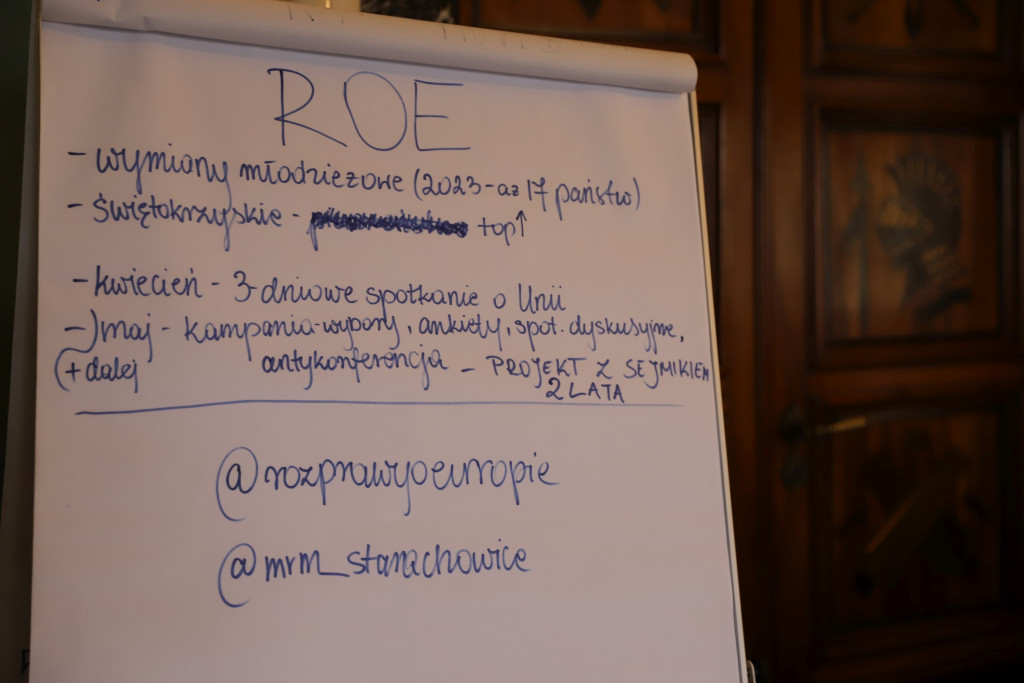 ROE
- wymiany młodzieżowe (2023-aż 17 państw)
- Świętokrzyskie - top↑
- kwiecień - 3-dniowe spotkanie o Unii
-) maj - kampania-wybory, ankiety, spot. dyskusyjne,
(+ dalej antykonferencja - PROJEKT Z SEJMIKIEM
2 LATA
@rozprawyoeuropie
@mrm_starachowice